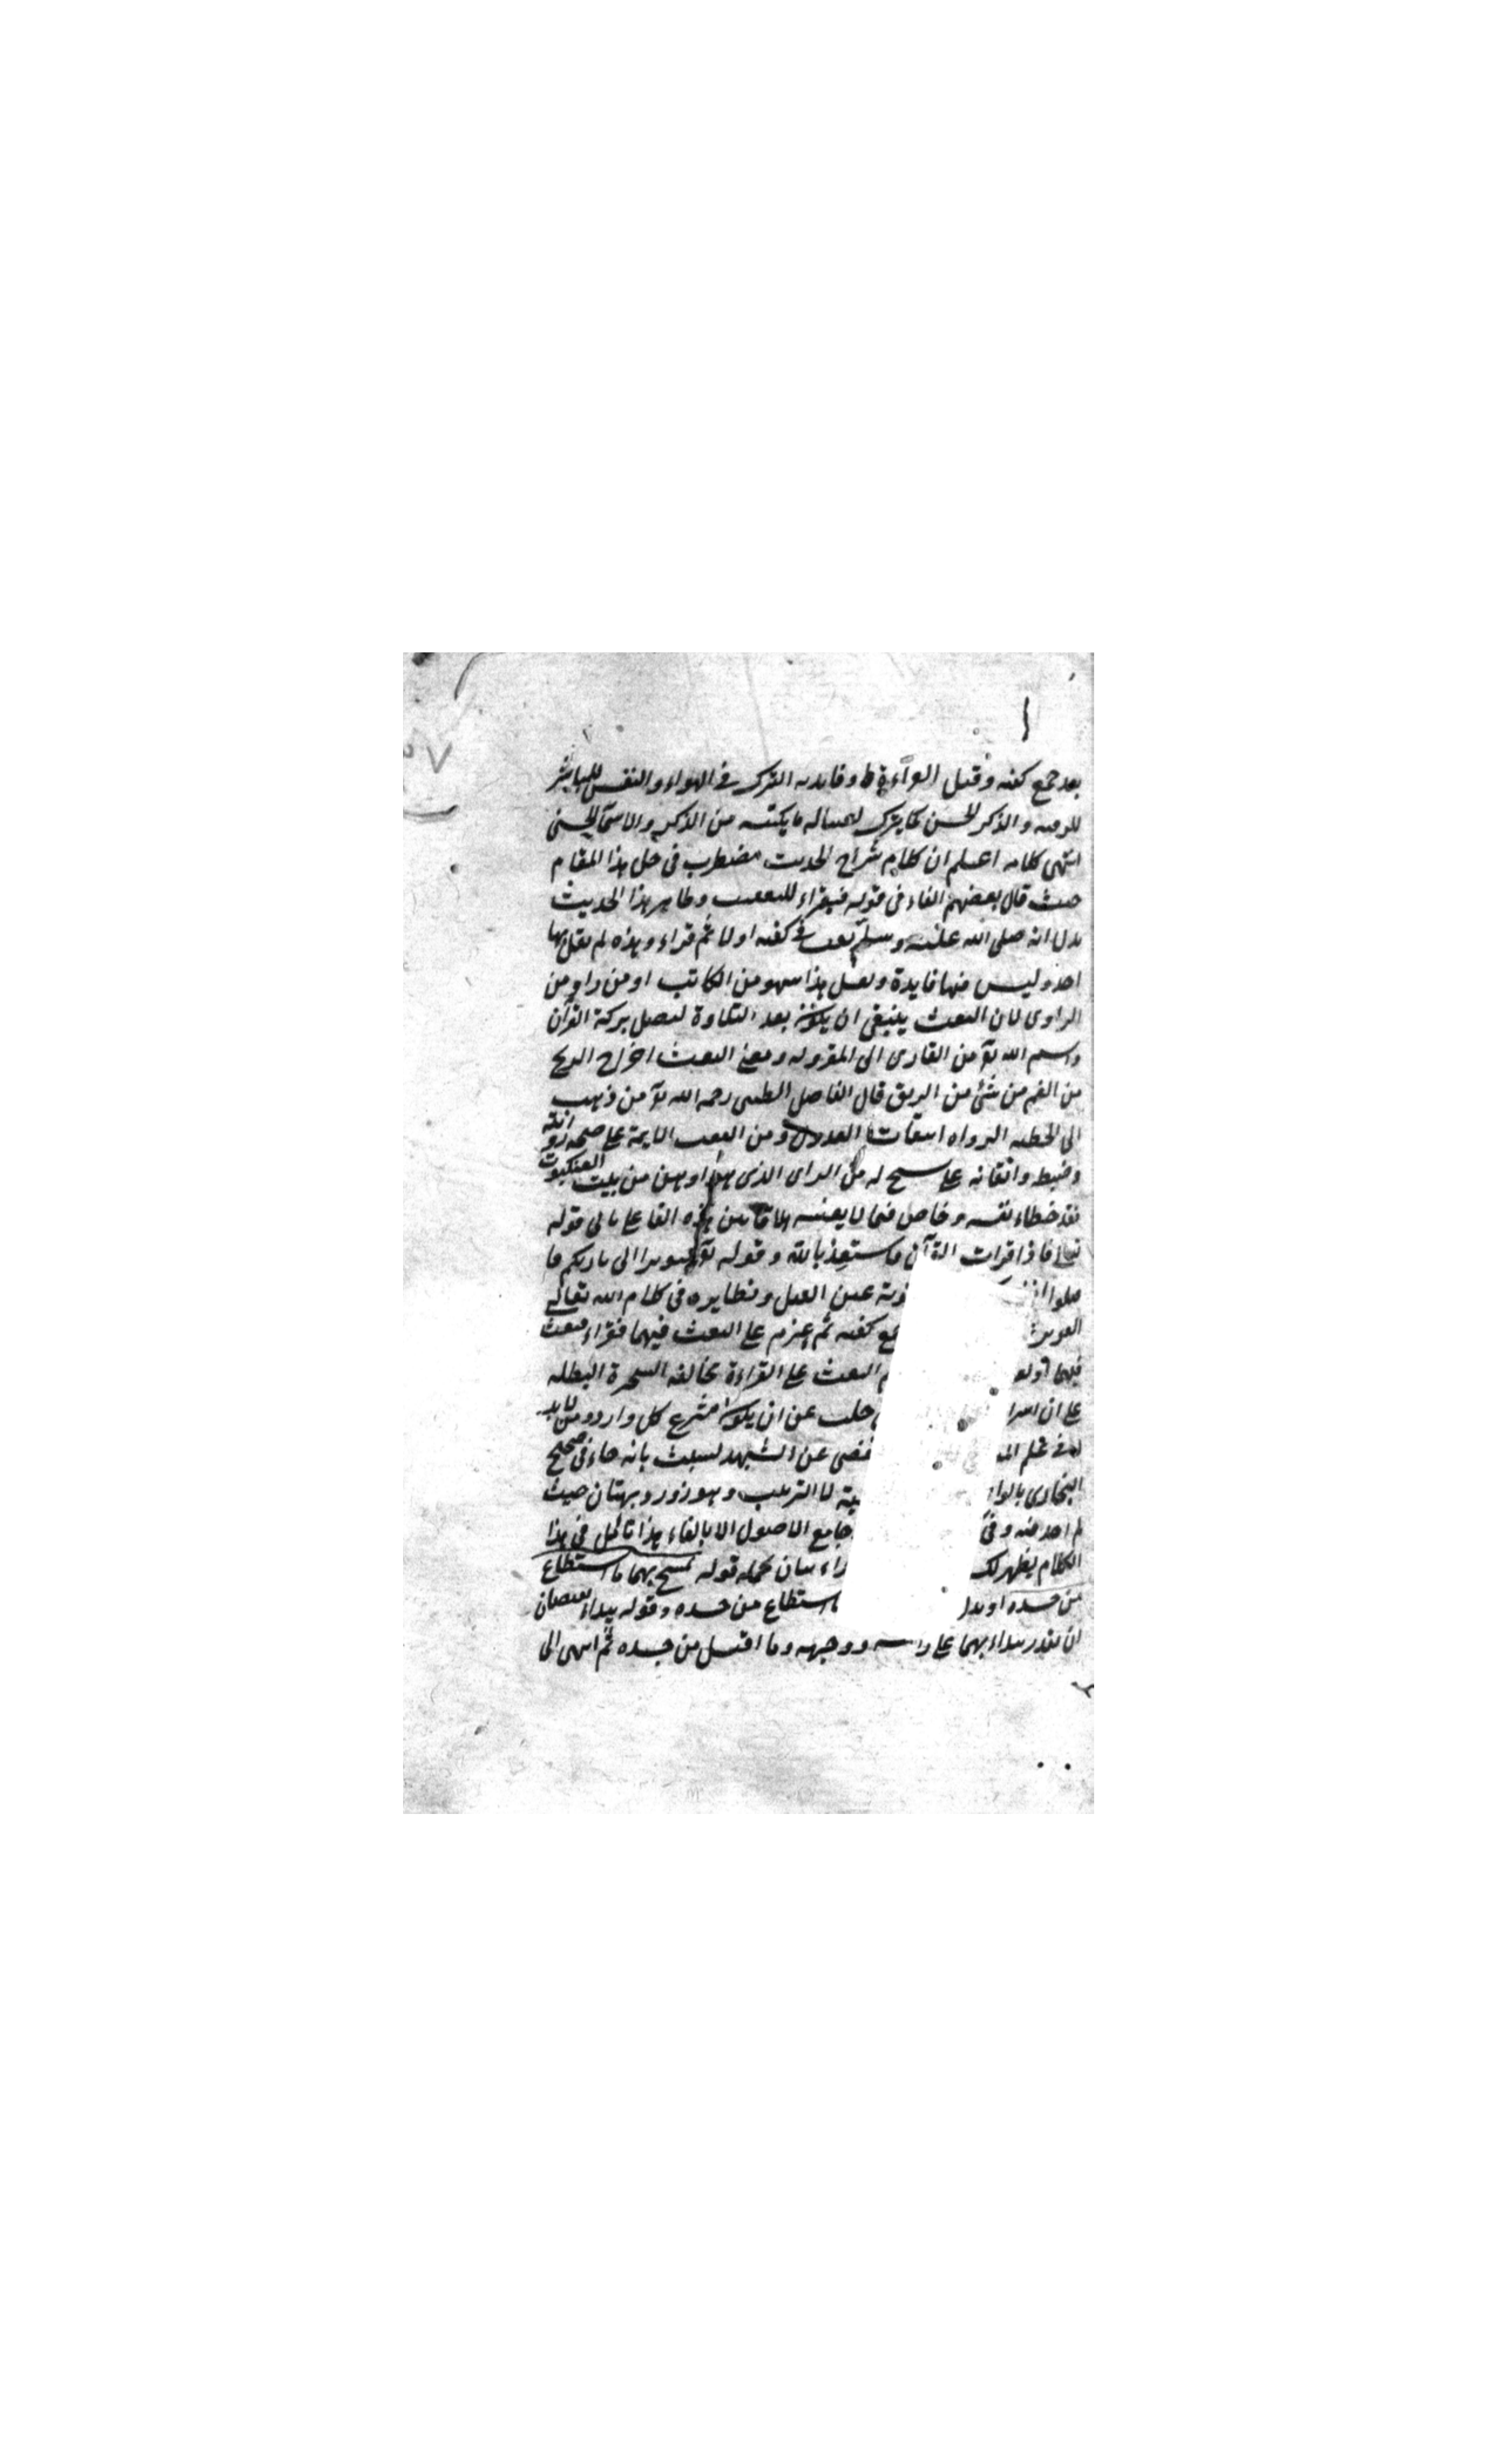 بعد جمع كفيه وقبل القراءة وفايدته التبرك في الهواء والنفس المباشر
للرقية والذكر الحسن كما يتبرك بغسالة ما يكتب من الذكر والاسماء الحسنى
انتهى كلامه اعلم ان كلام شراح الحديث مضطرب في حل هذا المقام
حيث قال بعضهم الفاء في قوله فيقراء للتعقيب وظاهر هذا الحديث
يدل انه صلى الله عليه وسلم نفث في كفيه اولا ثم قراء وهذه لم يقل بها
احد وليس فيها فايدة ولعل هذا سهو من الكاتب او من راو من
الراوى لان النفث ينبغى ان يكون بعد التلاوة ليصل بركة القرآن
واسم الله تع من القارى الى المقروله ومعنى النفث اخراج الريح
من الفم من شئ من الريق قال الفاضل الطيبى رحمه الله تع من ذهب
الى تخطية الرواه الثقات العدول ومن اتفقت الايمة على صحة روايته
وضبطه واتقانه على سنح له من الراى الذى هو اوهن من بيت العنكبوت
فقد خطاء نفسه وخاض فيما لا يعنيه هلا قاس هذه الفا على ما في قوله
تعالى فاذا قرات القرآن فاستعذ بالله وقوله تع فتوبوا الى باريكم فا
قتلوا ا التوبة عين القتل ونظايره في كلام الله تعالى
العزيز جمع كفيه ثم عزم على النفث فيهما فقراء فنفث
فيهما اولعل النفث على القراءة مخالفة السحرة البطلة
على ان اسرا جلت عن ان يكون مشرع كل وارد ومن لا يد
له في علم الم تفصى عن الشبهه تشبث بانه جاء في صحيح
البخارى بالواو لا الترتيب وهو زور وبهتان حيث
لم اجد فيه وفى جامع الاصول الا بالفاء هذا تامل في هذا
الكلام يظهر لك بيان لجملة قوله يمسح بهما ما استطاع
من جسده او بدل ما استطاع من جسده وقوله يبداء
ان يقدر يبداء بهما على راسه ووجهه وما اقبل من جسده ثم انتهى الى